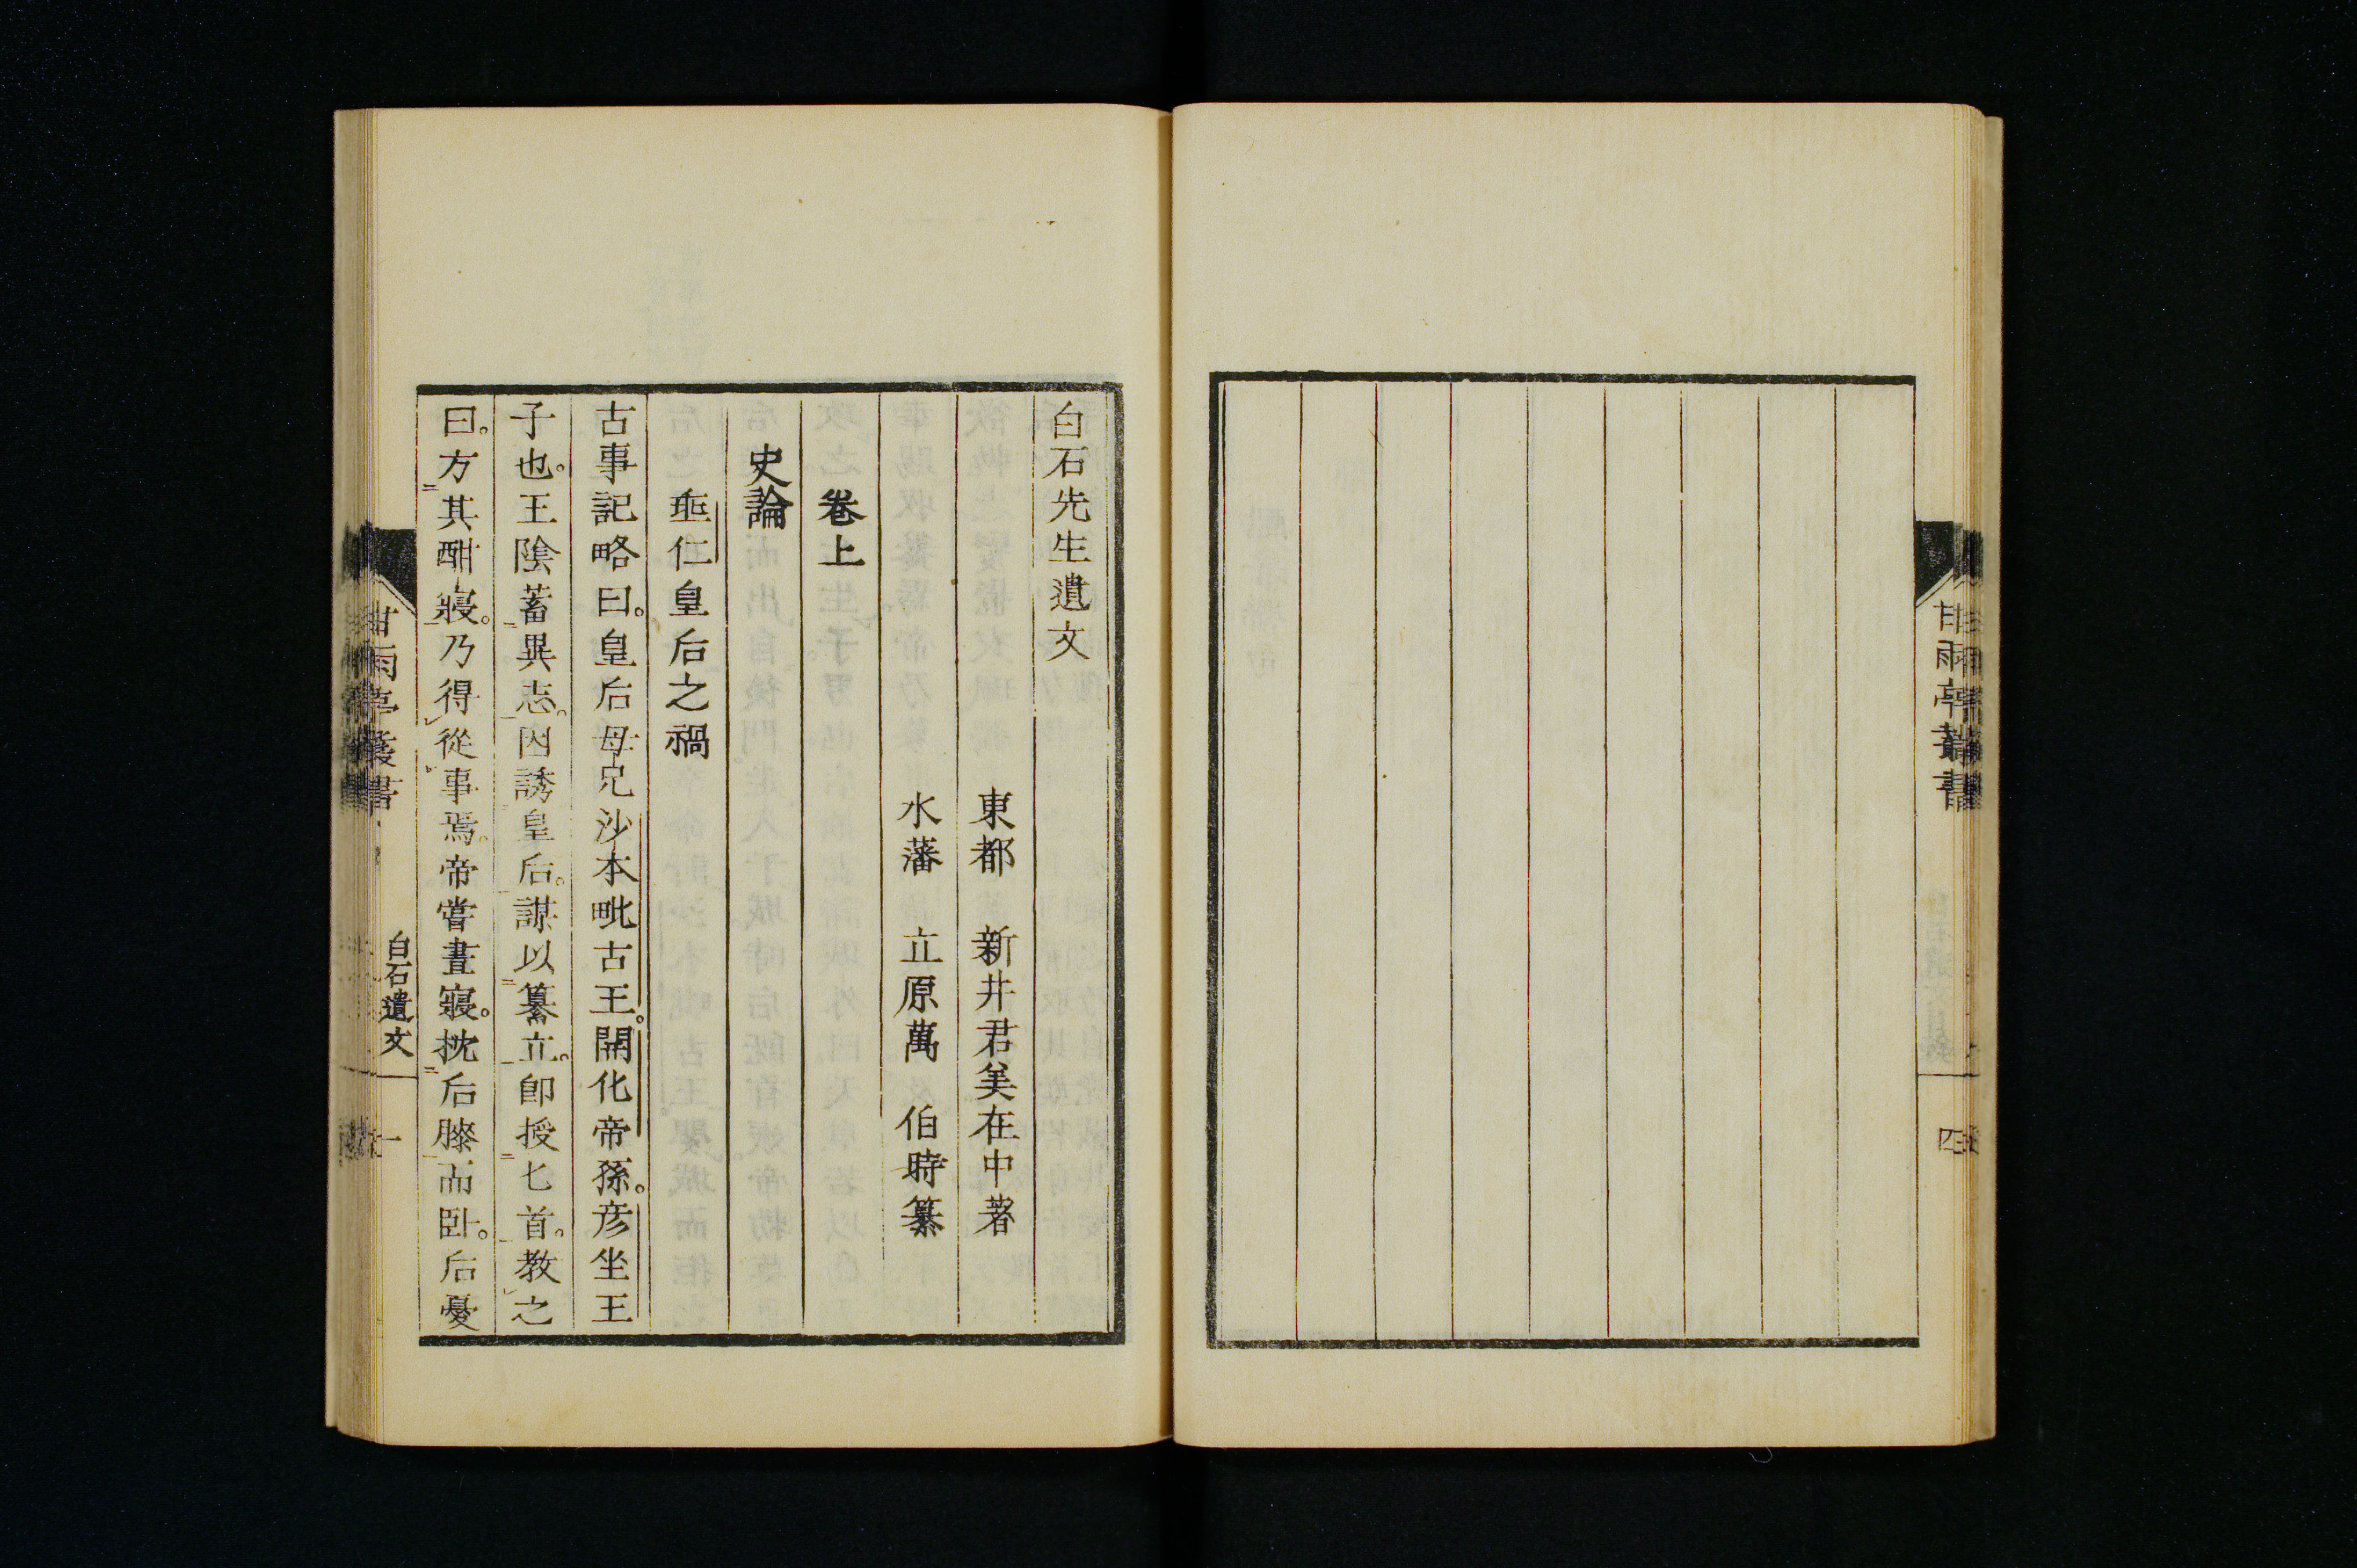 甘雨亭叢書
四
白石先生遺文
東都 新井君美在中著
水藩 立原萬 伯時纂
卷上
史論
垂仁皇后之禍
古事記略曰。皇后母兄沙本毗古王。開化帝孫。彦坐王
子也。王陰蓄異志。因誘皇后。謀以纂立。卽授匕首。教之
曰。方其酣寢。乃得從事焉。帝嘗晝寢。枕后膝而卧。后憂
甘雨亭叢書
白石遺文
一